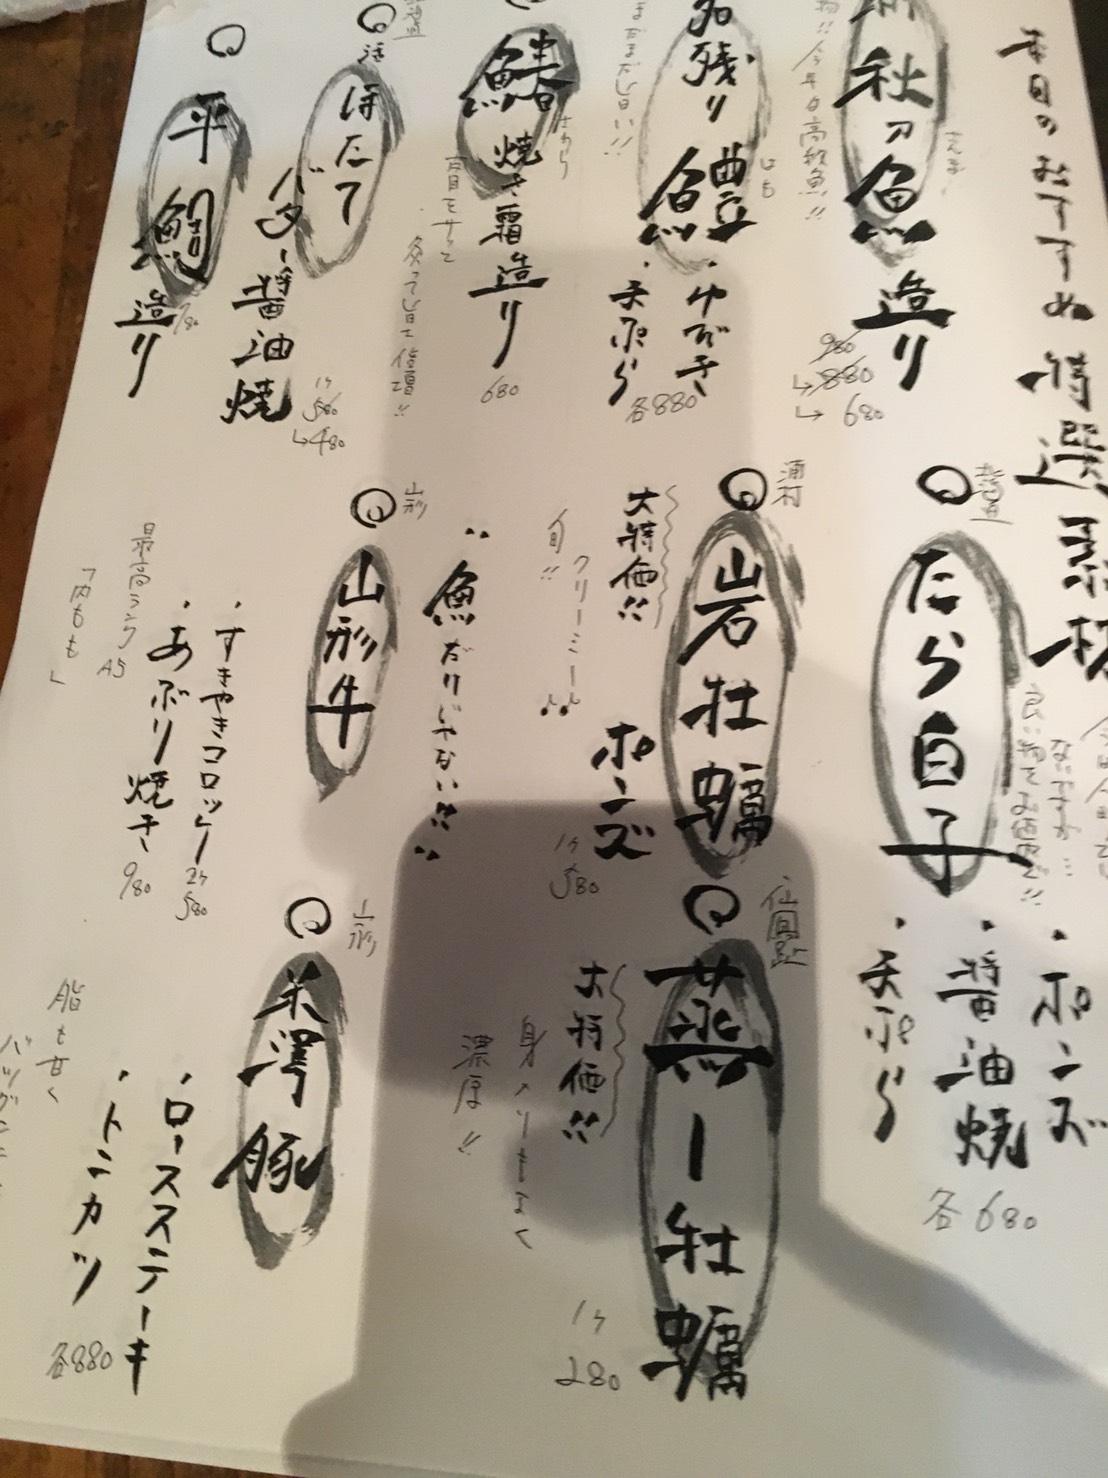 本日のおすすめ 特選素材
秋刀魚
さんま
造り
980
↳ 880
↳ 680
名残り鱧
はも
・ゆびき
・天ぷら
各880
まだまだ旨い!!
鰆
さわら
焼き霜造り
680
皮目をサッと
炙って旨士倍増!!
活
ほたて
バター醤油焼
1ケ
580
↳480
平鯛
造り
780
北海道
たら白子
良い物でお値打ちで!!
・ポンズ
・醤油焼
・天ぷら
各680
浦村
岩牡蠣
大特価!!
クリーミー♪
旬!!
ポンズ
1ケ
580
仙鳳趾
蒸し牡蠣
大特価!!
身入りもよく
濃厚!!
1ケ
280
“魚だけじゃない!!”
山形
山形牛
・すきやきコロッケ 2ケ 580
・あぶり焼き 980
最高ランク A5
「内もも」
山形
米澤豚
・ロースステーキ
・トンカツ
各880
脂も甘く